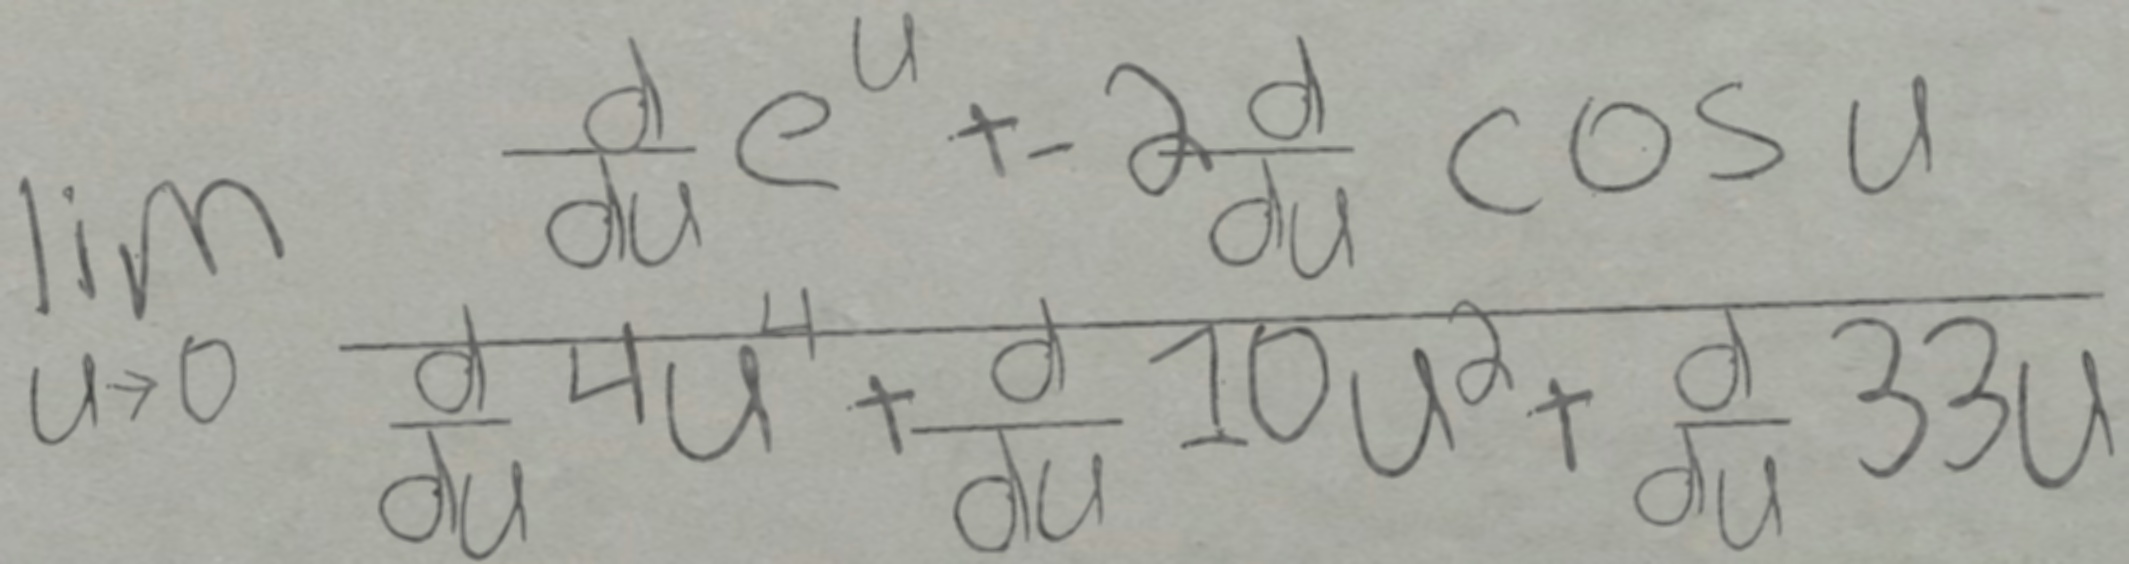 \lim_{u \to 0} \frac{\frac{d}{du} e^{u} + -2 \frac{d}{du} \cos u}{\frac{d}{du} 4u^{4} + \frac{d}{du} 10u^{2} + \frac{d}{du} 33u}